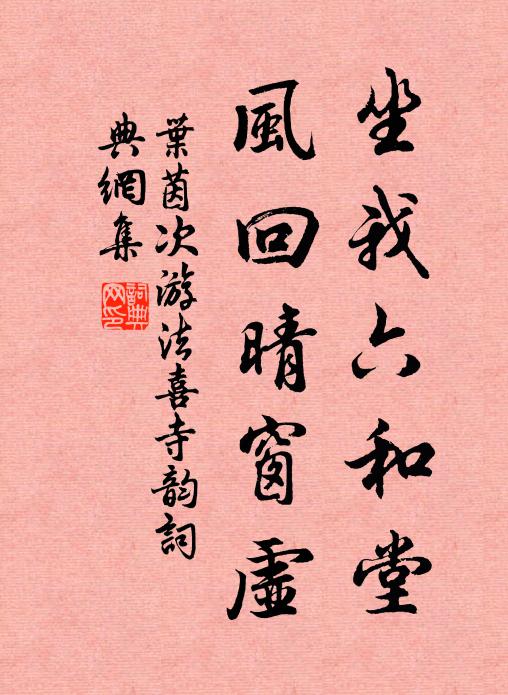 坐我六和堂
風回晴窗虛
葉茵次游法喜寺韵詞
典網集
詞典網印